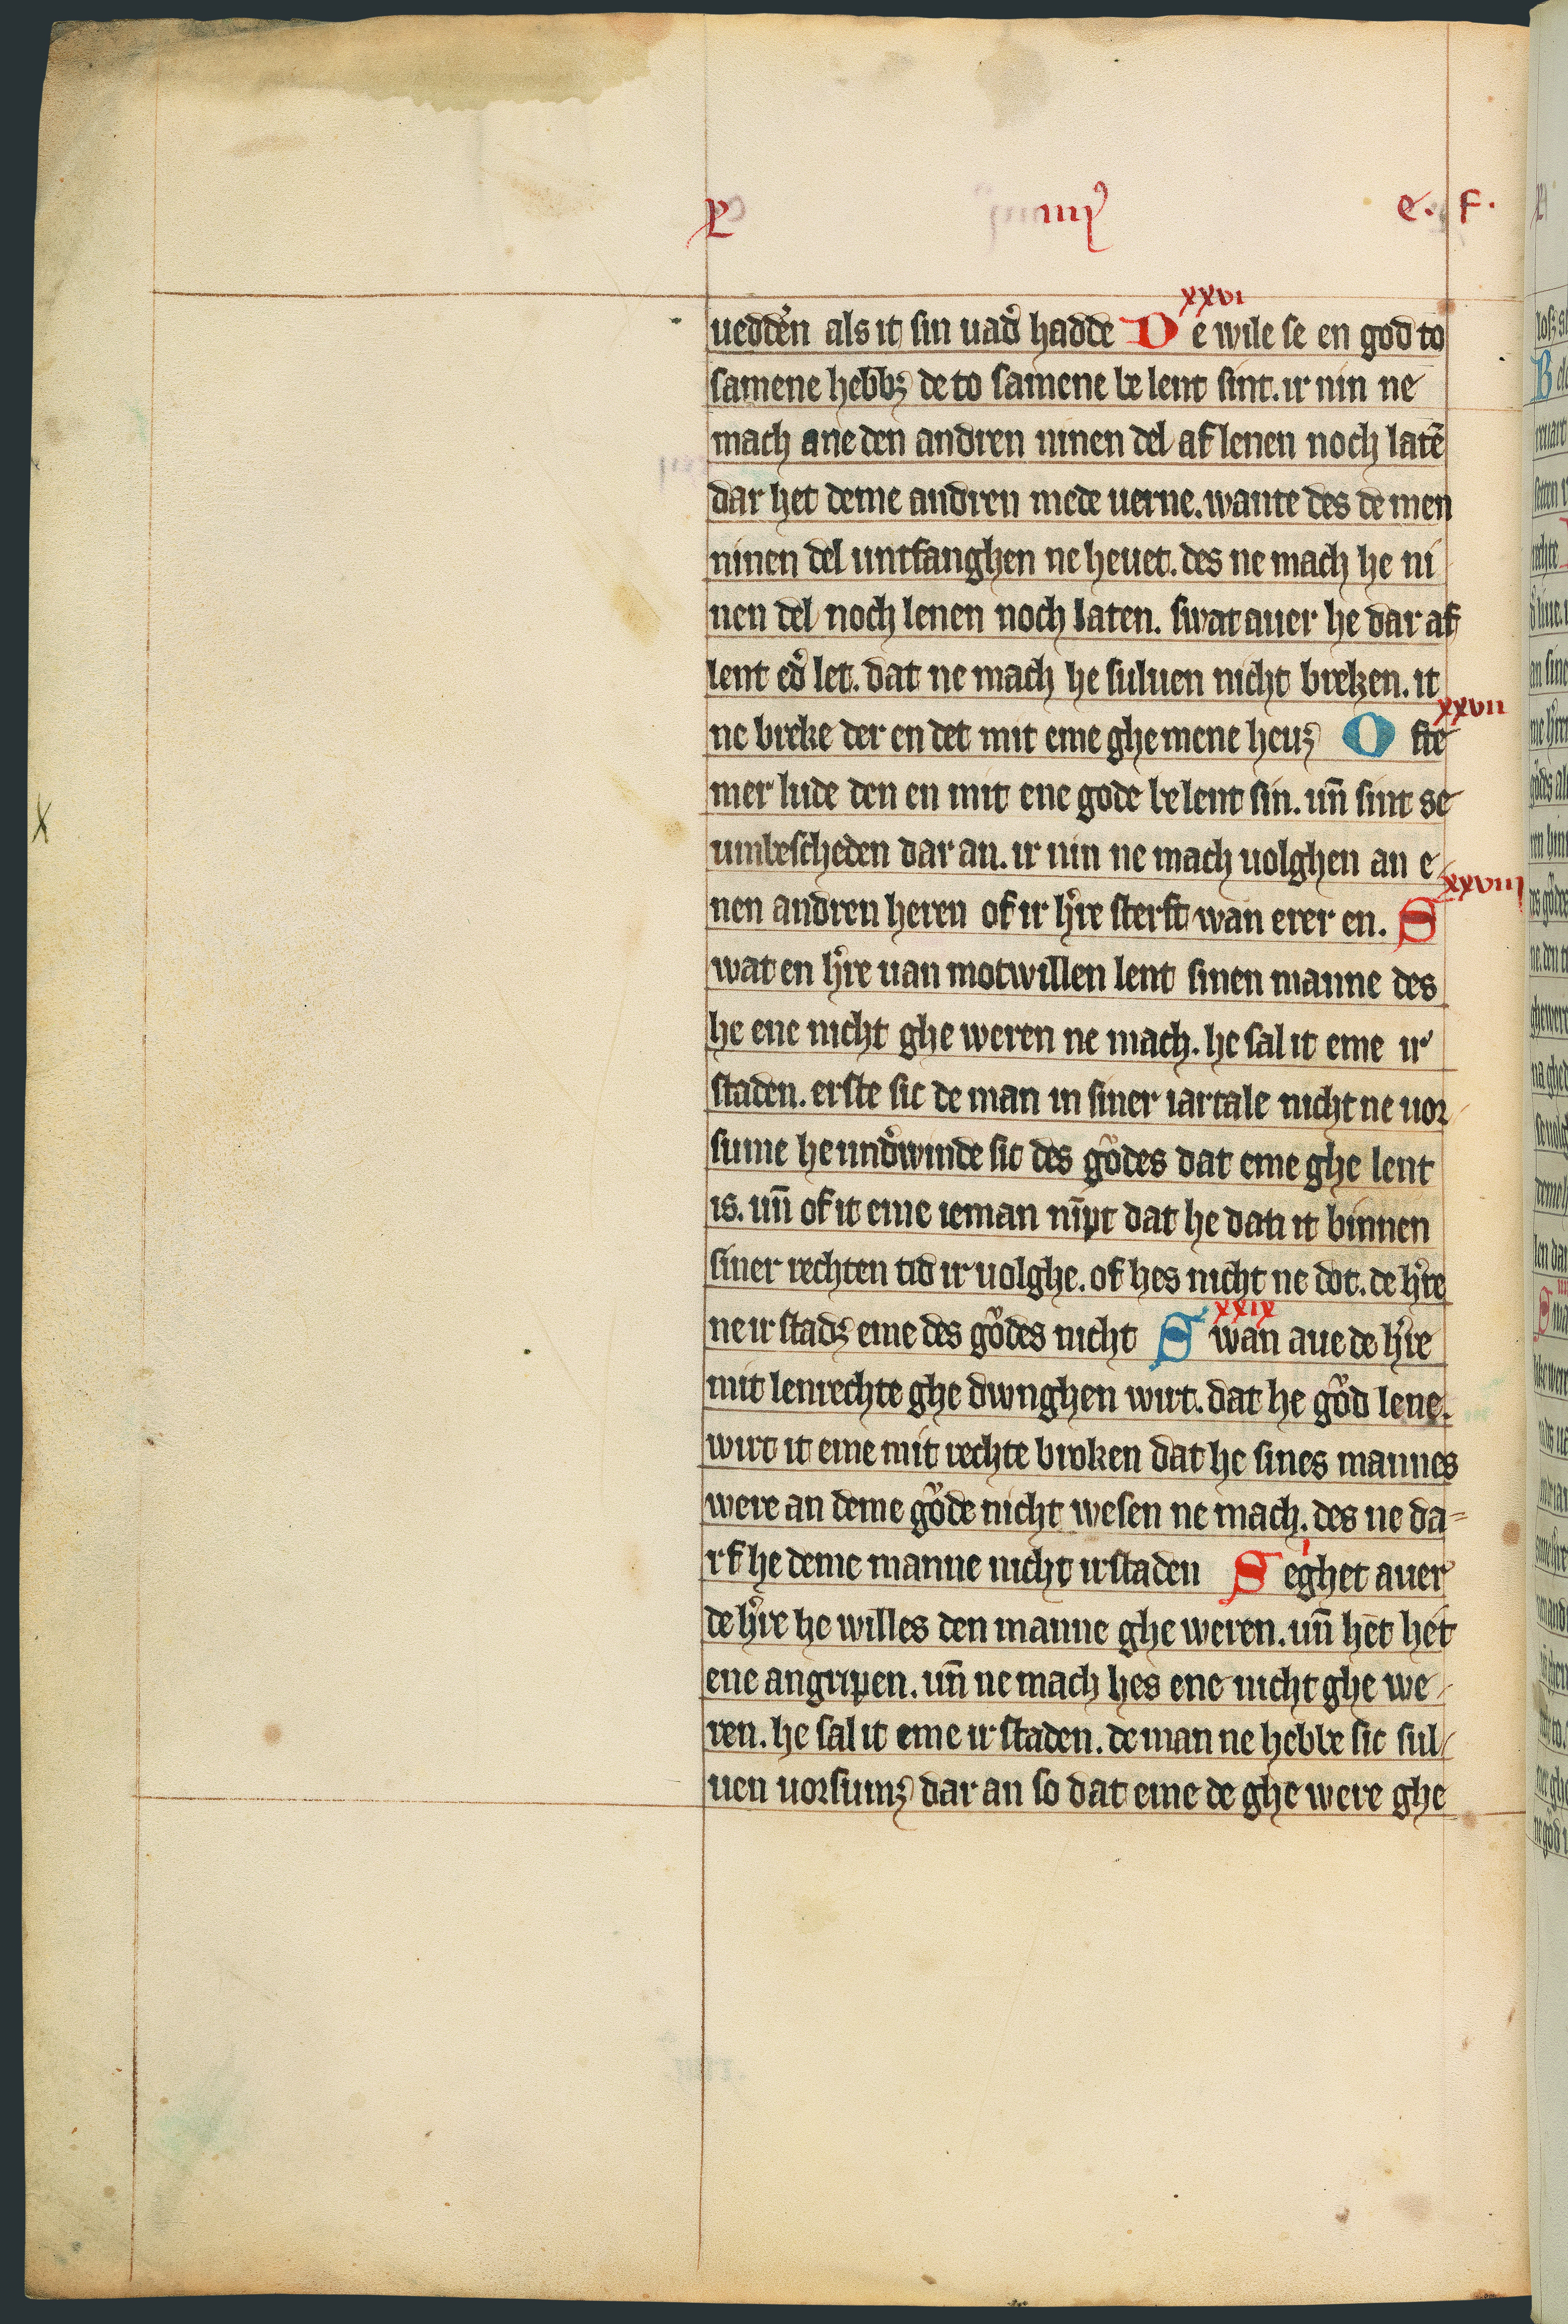 L iiij e. f.
xxvi
uedde͛n als it sin uad͛ hadde De wile se en god to
samene hebbꝫ de to samene be lent sint. ir nin ne
mach ane den andren ninen del af lenen noch latē
dar het deme andren mede uerne. wante des de men
ninen del untfanghen ne heuet. des ne mach he ni
nen del noch lenen noch laten. swat auer he dar af
lent ed͛ let. dat ne mach he suluen nicht breken. it
xxvii
ne breke der en det mit eme ghe mene heuꝫ O fte
mer lude den en mit ene gode be lent sin. un̄ sint se
umbescheden dar an. ir nin ne mach uolghen an e
xxviii
nen andren heren of ir h͛re sterft wan erer en. S
wat en h͛re uan motwillen lent sinen manne des
he ene nicht ghe weren ne mach. he sal it eme ir
staden. erste sic de man in siner iartale nicht ne uor
sume he und͛winde sic des gůdes dat eme ghe lent
is. un̄ of it eme ieman nīpt dat he dan it binnen
siner rechten tid ir uolghe. of hes nicht ne dot. de h͛re
xxix
ne ir stadꝫ eme des gůdes nicht S wan aue de h͛re
mit lenrechte ghe dwnghen wirt. dat he gůd lene.
wirt it eme mit rechte broken dat he sines mannes
were an deme gůde nicht wesen ne mach. des ne da=
i
rf he deme manne nicht irstaden S eghet auer
de h͛re he willes den manne ghe weren. un̄ het het
ene angripen. un̄ ne mach hes ene nicht ghe we
ren. he sal it eme ir staden. de man ne hebbe sic sul
uen uorsumꝫ dar an so dat eme de ghe were ghe